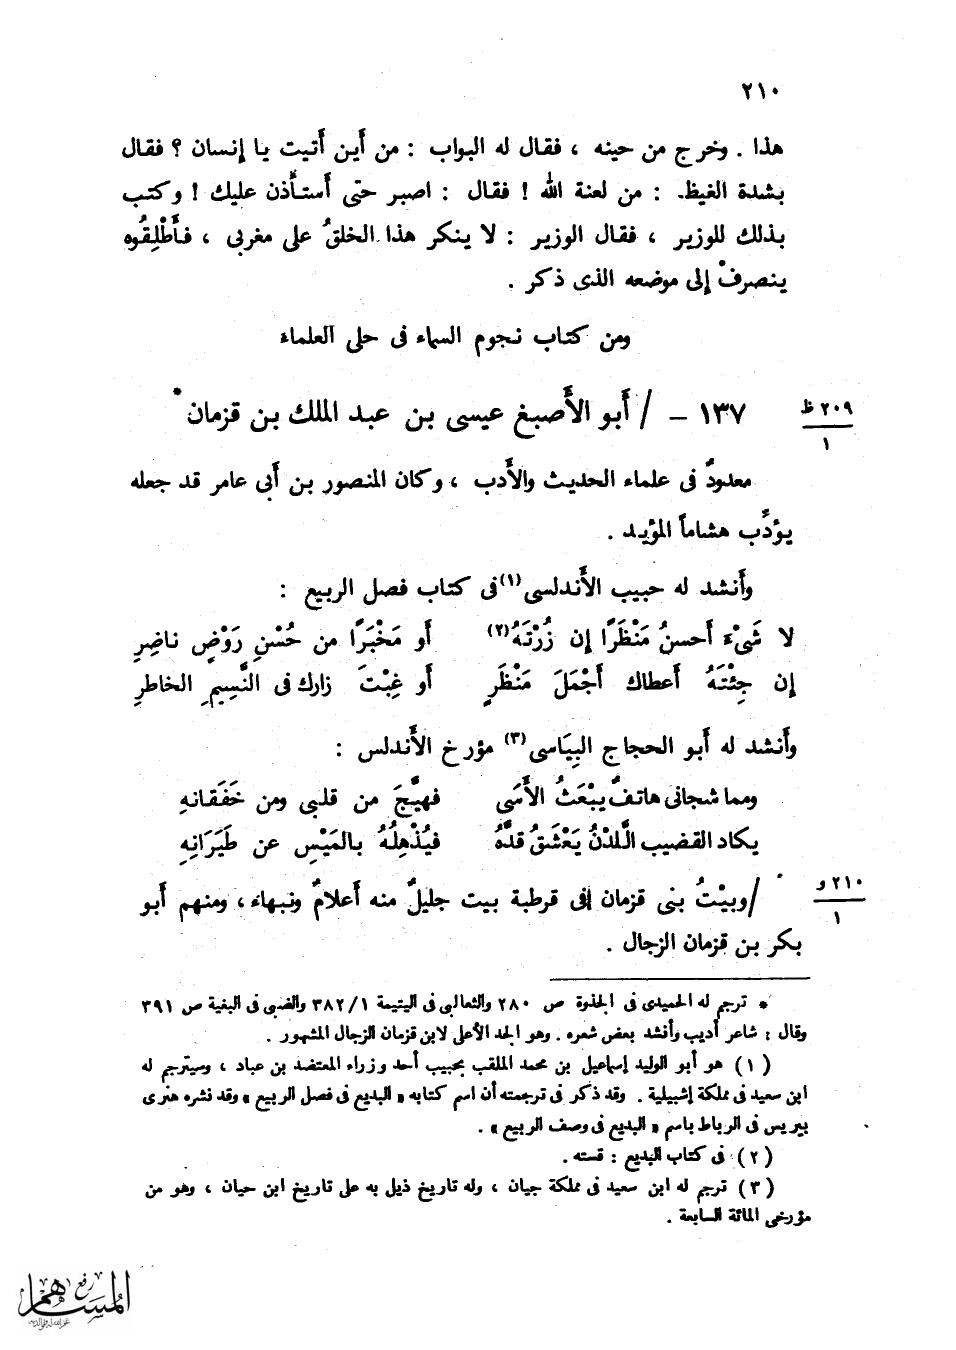 ٢١٠
هذا . وخرج من حينه ، فقال له البواب : من أَين أَتيت يا إنسان ؟ فقال
بشدة الغيظ : من لعنة الله ! فقال : اصبر حتى أَستأْذن عليك ! وكتب
بذلك للوزير ، فقال الوزير : لا ينكر هذا الخلقُ على مغربى ، فأَطْلِقُوه
ينصرفْ إلى موضعه الذى ذكر .
ومن كتاب نجوم السماء فى حلى العلماء
١٣٧ – / أَبو الأَصبغ عيسى بن عبد الملك بن قزمان *
٢٠٩ ظ
١
معدودٌ فى علماء الحديث والأَدب ، وكان المنصور بن أَبى عامر قد جعله
يؤدِّب هشاماً المؤيد .
وأَنشد له حبيب الأَندلسى (١) فى كتاب فصل الربيع :
لا شَىْءَ أَحسنُ مَنْظَرًا إن زُرْتَهُ (٢) أَو مَخْبَرًا من حُسْنِ رَوْضٍ ناضِرِ
إن جِئْتَهُ أَعطاك أَجْمَلَ مَنْظَرٍ أَو غِبْتَ زارك فى النَّسِيمِ الخاطرِ
وأَنشد له أَبو الحجاج البِيَاسى (٣) مؤرخ الأَندلس :
ومما شجانى هاتفٌ يبْعَثُ الأَسَى فهيَّجَ من قلبى ومن خَفَقانهِ
يكاد القضيب الَّلدْنُ يَعْشَقُ قدَّهُ فيُذْهِلُهُ بالمَيْسِ عن طَيَرَانِهِ
/وبيْتُ بنى قزمان فى قرطبة بيت جليلٌ منه أَعلامٌ ونبهاء ، ومنهم أَبو
٢١٠ و
١
بكر بن قزمان الزجال .
* ترجم له الحميدى فى الجذوة ص ٢٨٠ والثعالبى فى اليتيمة ٣٨٢/١ والضبى فى البغية ص ٣٩١
وقال : شاعر أديب وأنشد بعض شعره . وهو الجد الأعلى لابن قزمان الزجال المشهور .
(١) هو أبو الوليد إسماعيل بن محمد الملقب بحبيب أحد وزراء المعتضد بن عباد ، وسيترجم له
ابن سعيد فى مملكة إشبيلية . وقد ذكر فى ترجمته أن اسم كتابه « البديع فى فصل الربيع » وقد نشره هنرى
بيريس فى الرباط باسم « البديع فى وصف الربيع » .
(٢) فى كتاب البديع : قسته .
(٣) ترجم له ابن سعيد فى مملكة جيان ، وله تاريخ ذيل به على تاريخ ابن حيان ، وهو من
مؤرخى المائة السابعة .
رفع
المساهم